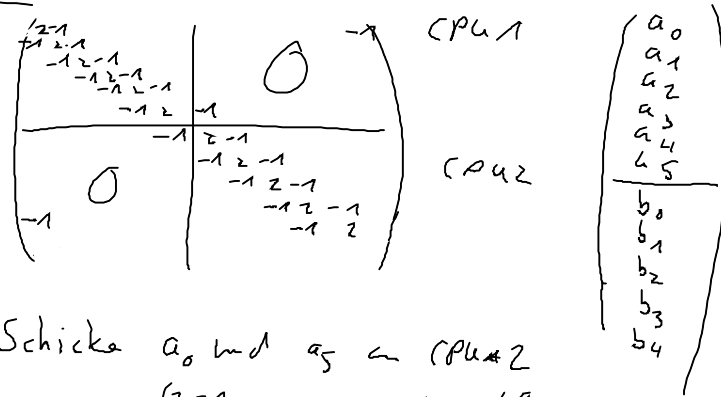 2 -1 -1 CPU 1
-1 2 -1 0
-1 2 -1
-1 2 -1
-1 2 -1
-1 2 -1
-1 2 -1 CPU 2
-1 2 -1
0 -1 2 -1
-1 2 -1
-1 -1 2
a0
a1
a2
a3
a4
a5
b0
b1
b2
b3
b4
Schicke a0 und a5 an CPU 2